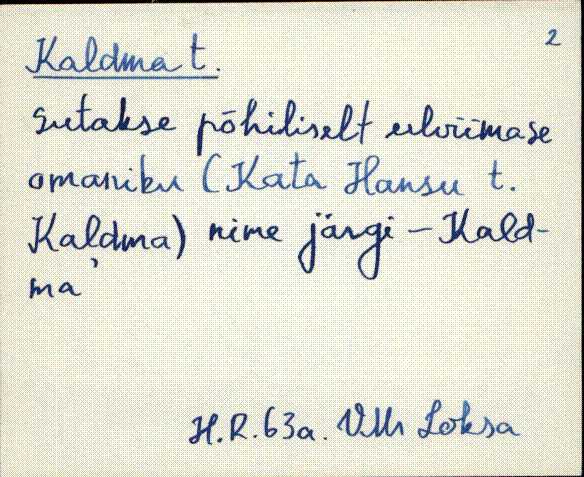 2
Kaldma t.
sutakse põhiliselt eelviimase
omaniku (Kata Hansu t.
Kaldma) nime järgi – Kald-
ma'
H.R. 63a. VMr Loksa